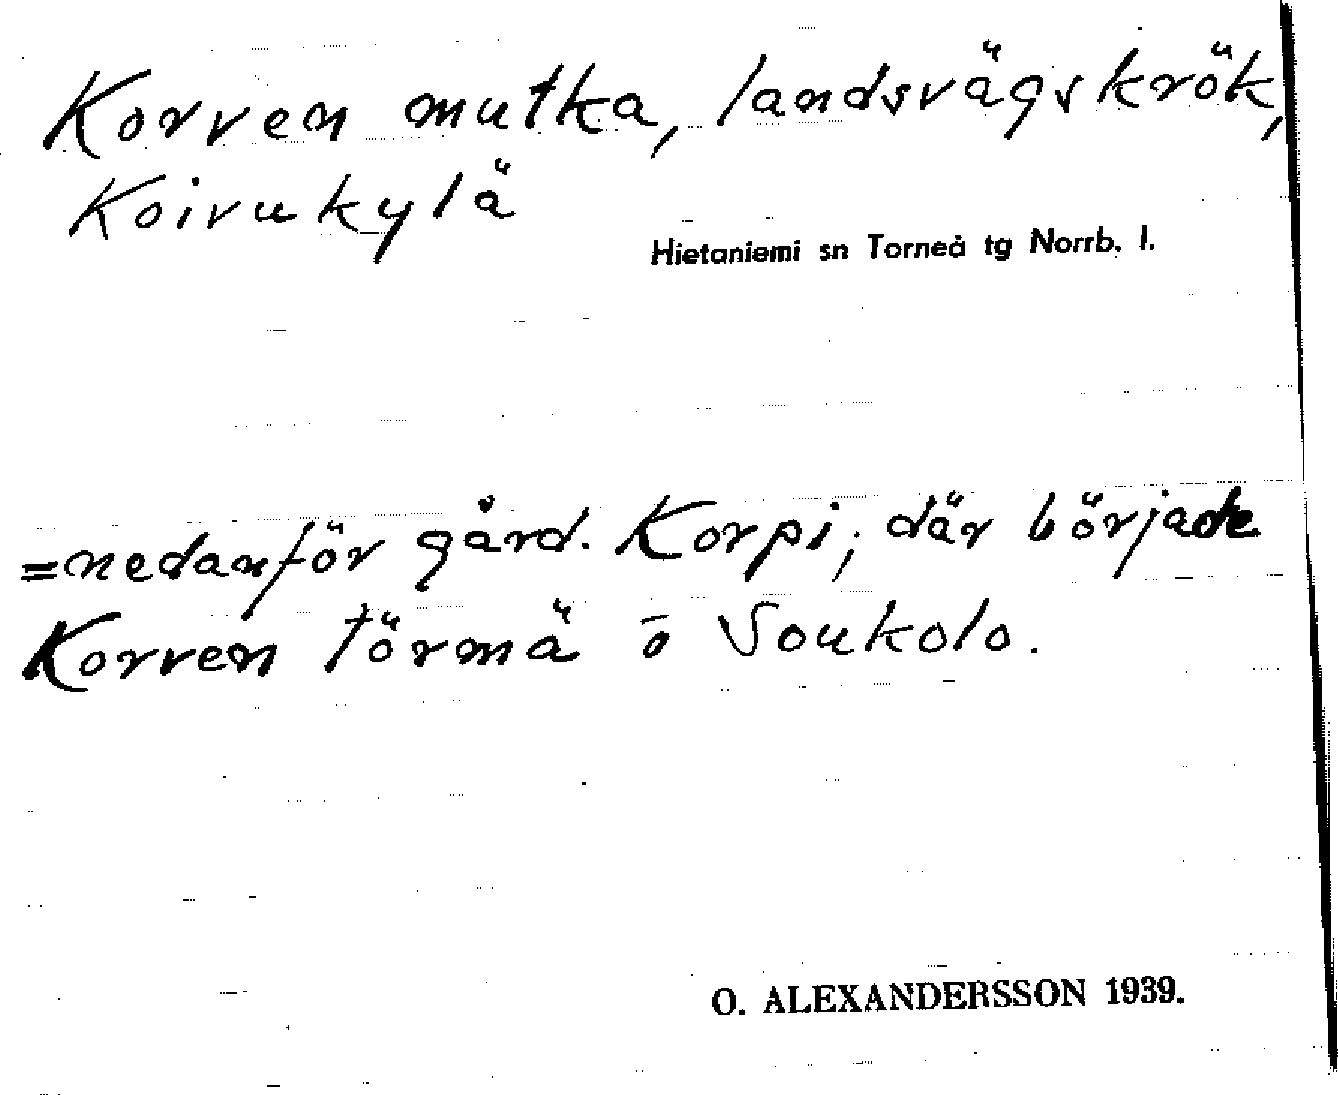 Korven mutka, landsvägskrök,
Koivukylä
Hietaniemi sn Torneå tg Norrb. l.
=nedanför gård. Korpi; där började
Korven törmä o Soukolo.
O. ALEXANDERSSON 1939.